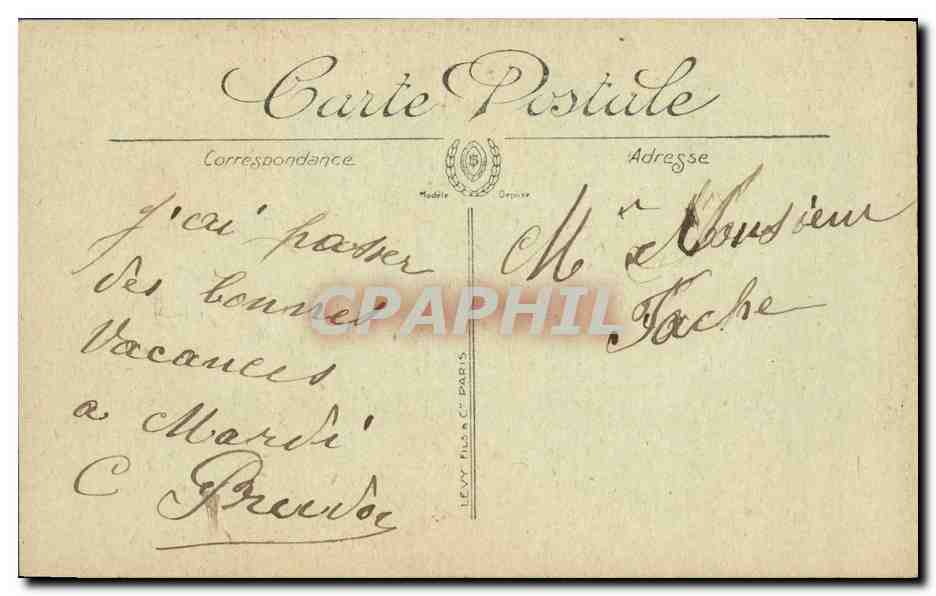 Carte Postale
Correspondance
Adresse
Modèle Déposé
j'ai passer
des bonnes
Vacances
a Mardi
C
M Monsieur
Fache
CPAPHIL
LEVY FILS & Cie PARIS